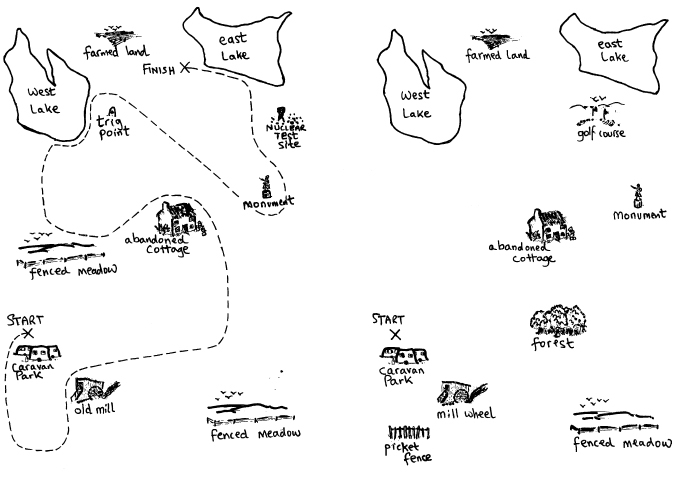 farmed land
east
Lake
FINISH
West
Lake
trig
point
NUCLEAR
TEST
SITE
monument
abandoned
cottage
fenced meadow
START
caravan
Park
old mill
fenced meadow
farmed land
east
Lake
West
Lake
golf course
monument
abandoned
cottage
START
forest
caravan
Park
mill wheel
picket
fence
fenced meadow